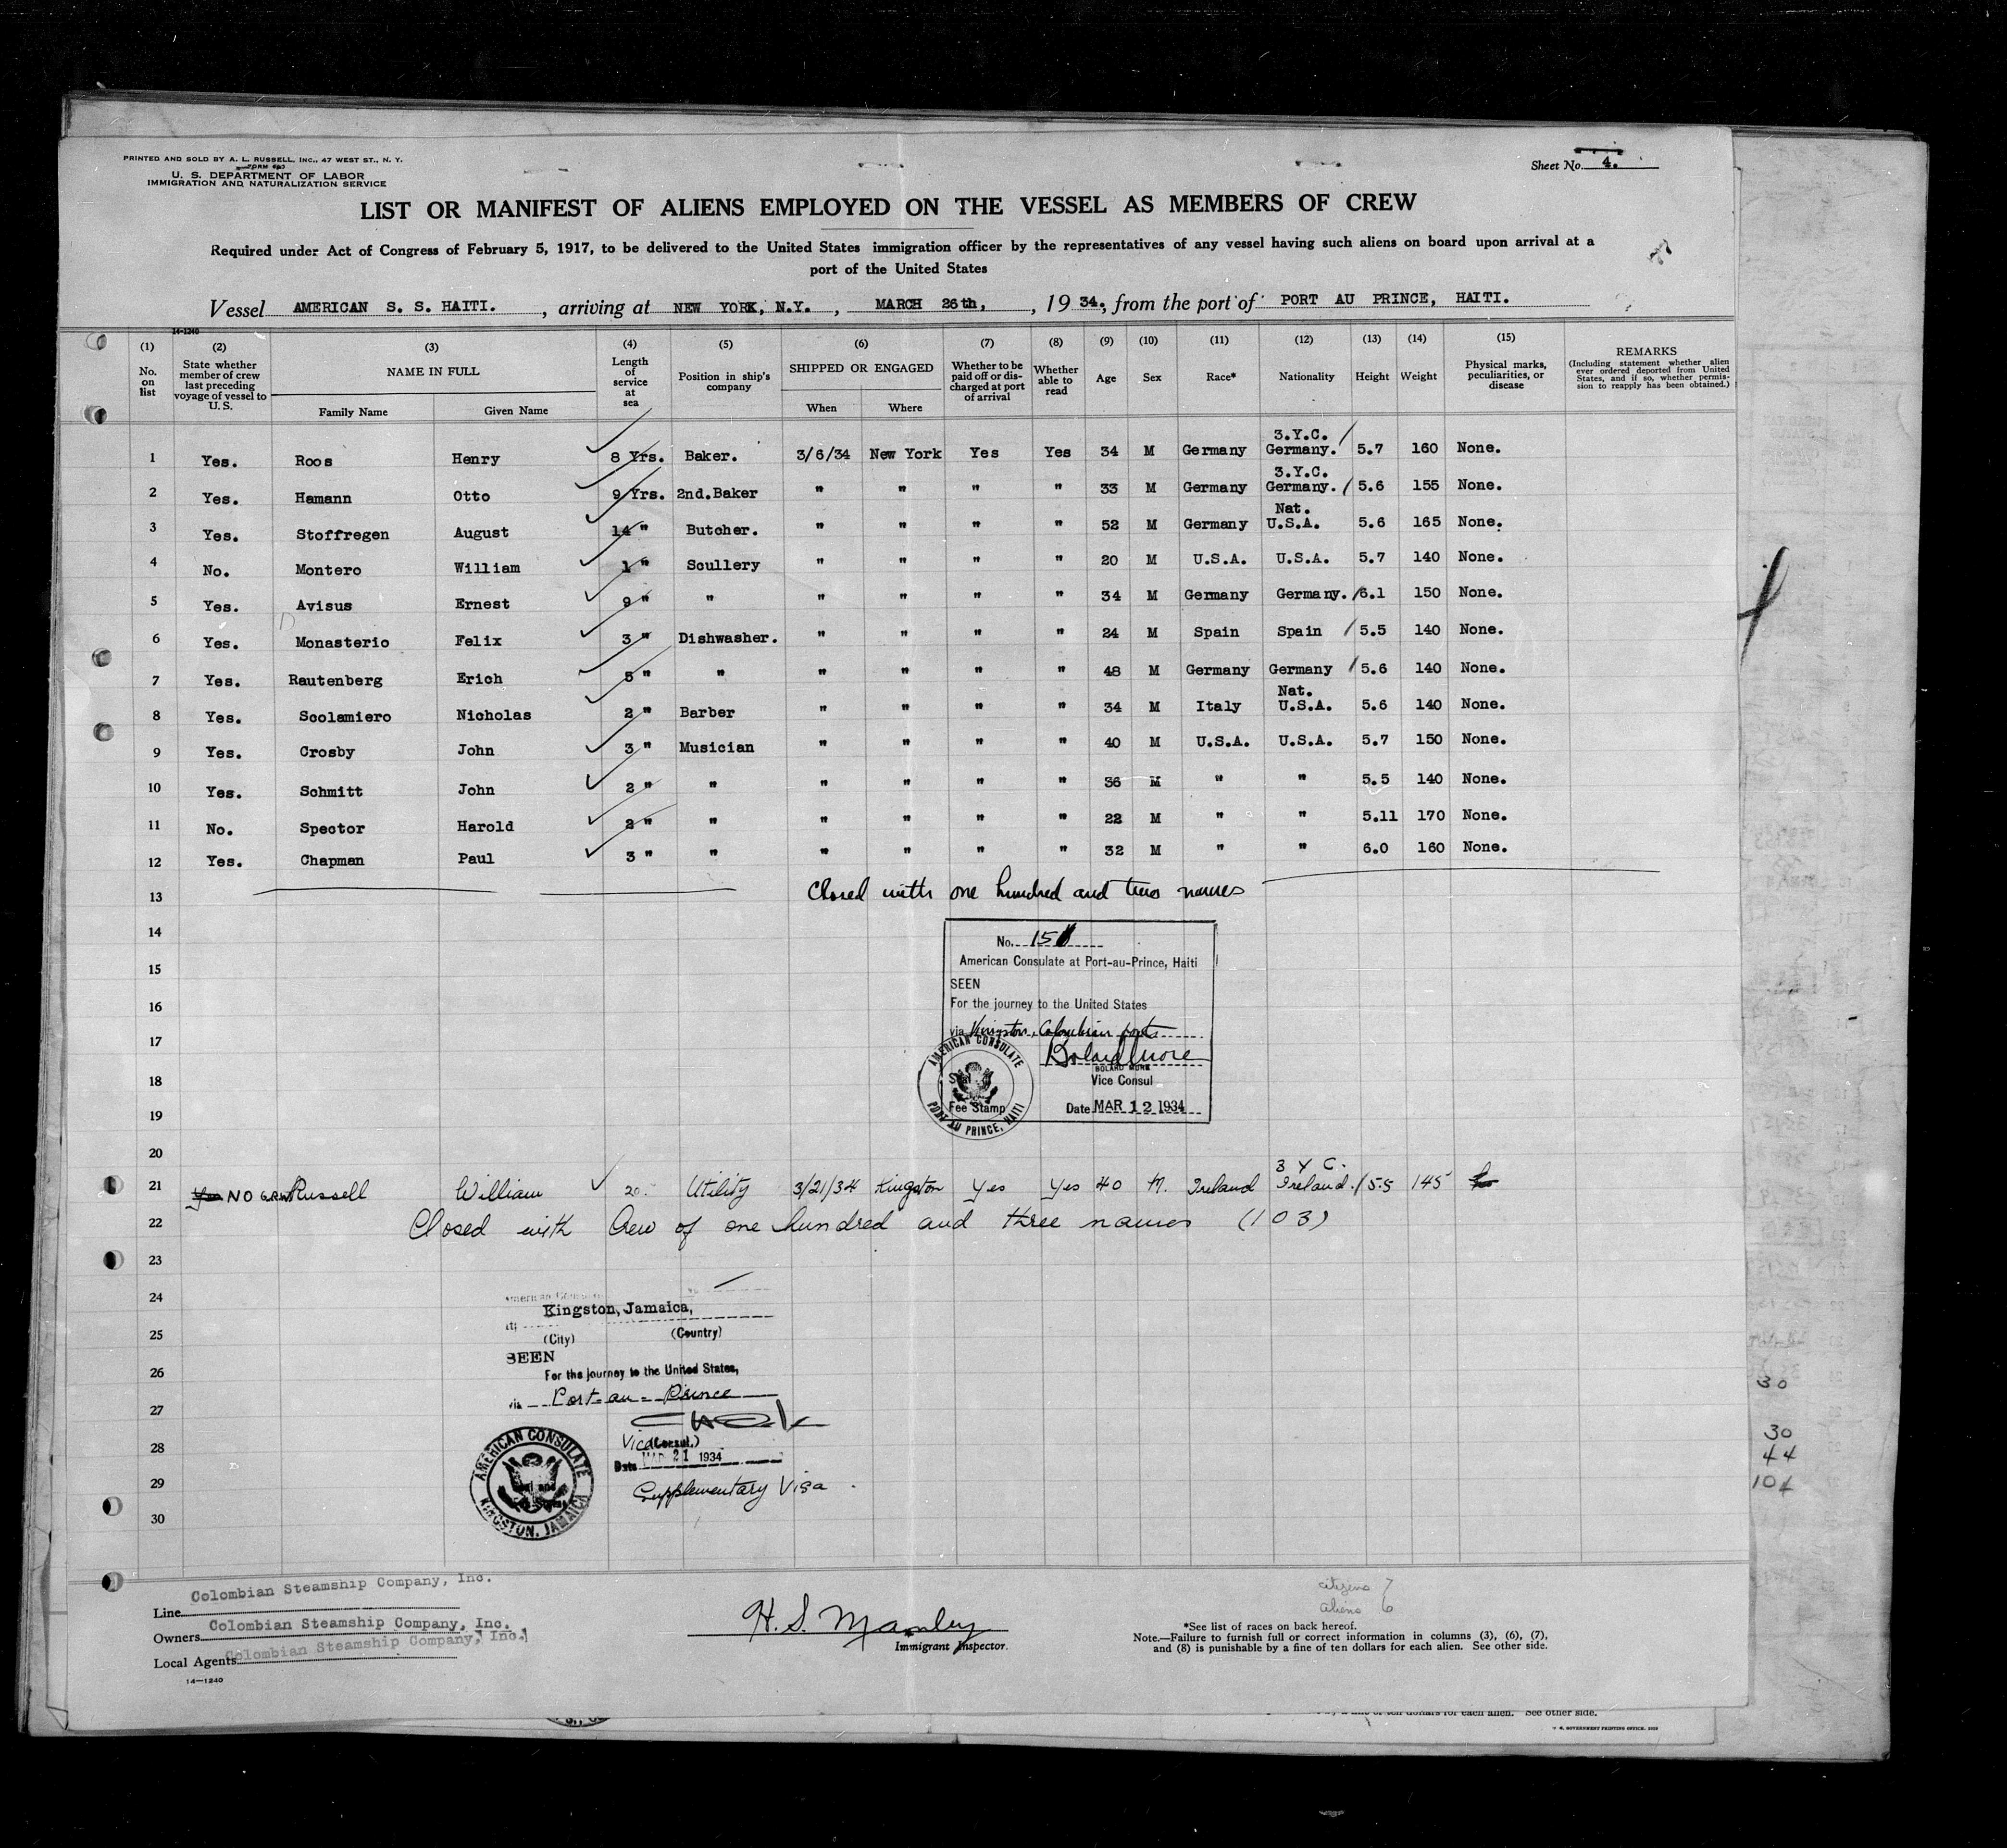 PRINTED AND SOLD BY A. L. RUSSELL, INC., 47 WEST ST., N. Y.
U. S. DEPARTMENT OF LABOR
IMMIGRATION AND NATURALIZATION SERVICE
Sheet No. 4.
LIST OR MANIFEST OF ALIENS EMPLOYED ON THE VESSEL AS MEMBERS OF CREW
Required under Act of Congress of February 5, 1917, to be delivered to the United States immigration officer by the representatives of any vessel having such aliens on board upon arrival at a
port of the United States
Vessel AMERICAN S. S. HAITI. , arriving at NEW YORK, N.Y. , MARCH 26th, , 19 34., from the port of PORT AU PRINCE, HAITI.
14-1240
(1) No. on list (2) State whether member of crew last preceding voyage of vessel to U. S. (3) NAME IN FULL Family Name Given Name (4) Length of service at sea (5) Position in ship's company (6) SHIPPED OR ENGAGED When Where (7) Whether to be paid off or discharged at port of arrival (8) Whether able to read (9) Age (10) Sex (11) Race* (12) Nationality (13) Height (14) Weight (15) Physical marks, peculiarities, or disease REMARKS (Including statement whether alien ever ordered deported from United States, and if so, whether permission to reapply has been obtained.)
1 Yes. Roos Henry 8 Yrs. Baker. 3/6/34 New York Yes Yes 34 M Germany 3.Y.C. Germany. 5.7 160 None.
2 Yes. Hamann Otto 9 Yrs. 2nd.Baker " " " " 33 M Germany 3.Y.C. Germany. 5.6 155 None.
3 Yes. Stoffregen August 14 " Butcher. " " " " 52 M Germany Nat. U.S.A. 5.6 165 None.
4 No. Montero William 1 " Scullery " " " " 20 M U.S.A. U.S.A. 5.7 140 None.
5 Yes. Avisus Ernest 9 " " " " " " 34 M Germany Germany. 6.1 150 None.
6 Yes. Monasterio Felix 3 " Dishwasher. " " " " 24 M Spain Spain 5.5 140 None.
7 Yes. Rautenberg Erich 5 " " " " " " 48 M Germany Germany 5.6 140 None.
8 Yes. Scolamiero Nicholas 2 " Barber " " " " 34 M Italy Nat. U.S.A. 5.6 140 None.
9 Yes. Crosby John 3 " Musician " " " " 40 M U.S.A. U.S.A. 5.7 150 None.
10 Yes. Schmitt John 2 " " " " " " 36 M " " 5.5 140 None.
11 No. Spector Harold 2 " " " " " " 22 M " " 5.11 170 None.
12 Yes. Chapman Paul 3 " " " " " " 32 M " " 6.0 160 None.
13 Closed with one hundred and two names
14
No. 151
American Consulate at Port-au-Prince, Haiti
15
SEEN
16
For the journey to the United States
via Kingston, Colombian ports
17
BOLARD MORE
18
Vice Consul
AMERICAN CONSULATE PORT AU PRINCE, HAITI
Fee Stamp
19
Date MAR 12 1934
20
21 Yes NO G.R.W. Russell William 20. Utility 3/21/34 Kingston Yes Yes 40 M. Ireland 3 Y C. Ireland. 5.5 145
22 Closed with Crew of one hundred and three names (103)
23
24
Kingston, Jamaica,
25
(City) (Country)
SEEN
26
For the journey to the United States,
via Port-au-Prince
27
28
Vice (Consul.)
Date MAR 21 1934
29
Supplementary Visa
AMERICAN CONSULATE KINGSTON, JAMAICA
30
30
30
44
104
Line Colombian Steamship Company, Inc.
Owners Colombian Steamship Company, Inc.
Local Agents Colombian Steamship Company, Inc.
14—1240
H. S. Manley
Immigrant Inspector.
citizens 7
aliens 6
*See list of races on back hereof.
Note.—Failure to furnish full or correct information in columns (3), (6), (7),
and (8) is punishable by a fine of ten dollars for each alien. See other side.
ten dollars for each alien. See other side.
U. S. GOVERNMENT PRINTING OFFICE